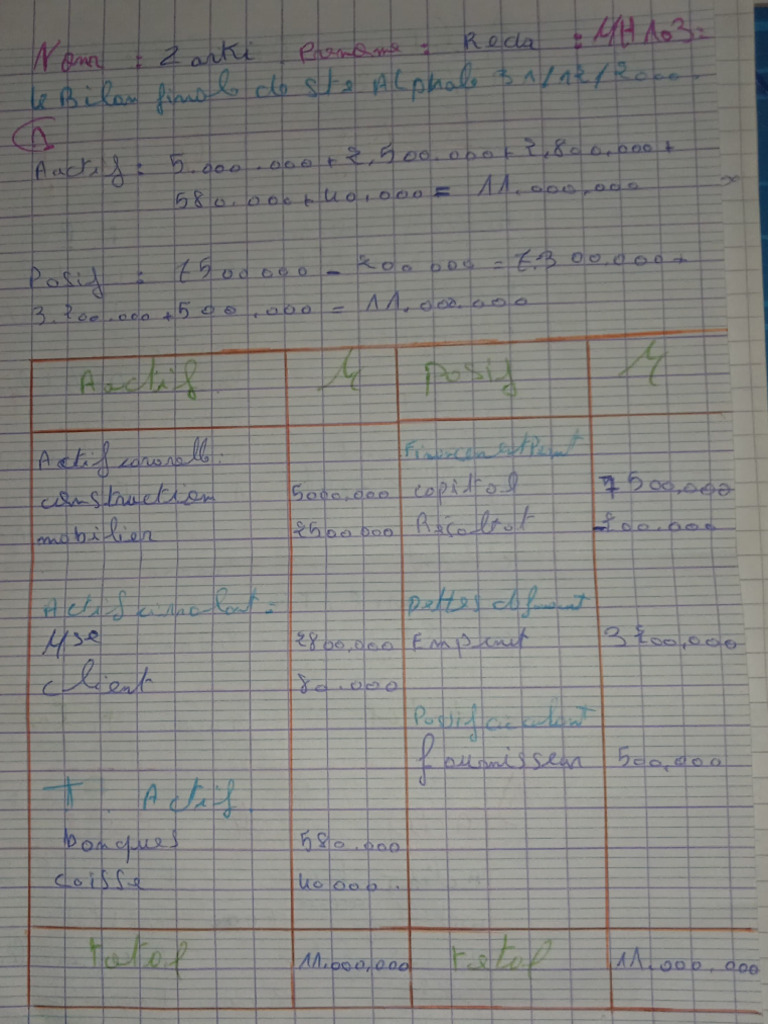 Nom : Zarki Prénome : Reda : MH103=
le Bilan finale de Ste Alphale 31/12/2000
1
Aactif : 5.000.000+2,500.000+2,800,000+
580.000+40,000= 11.000,000
Posif : 7500000 - 200000 = 7.300.000+
3.200.000+500.000= 11.000.000
Aactif M Posif M
Actif : Financement
construction 5000,000 copital 7500,000
mobilier 2500000 Résoltot -200.000
Actif : Dettes
Mse 2800,000 Emprunt 3200,000
client 80.000
Posif
fournisseur 500,000
T. Actif
bonques 580.000
coisse 40000.
total 11.000,000 total 11.000,000